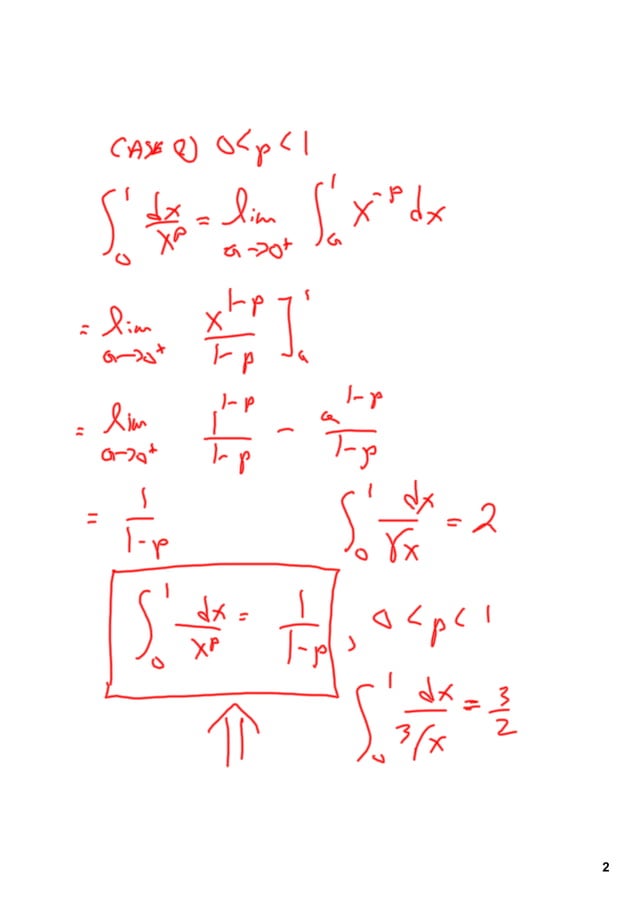 CASE 2) 0<p<1
∫₀¹ dx/x^p = lim a→0⁺ ∫ₐ¹ x^(-p) dx
= lim a→0⁺ x^(1-p)/(1-p) ]ₐ¹
= lim a→0⁺ 1^(1-p)/(1-p) - a^(1-p)/(1-p)
= 1/(1-p)
∫₀¹ dx/√x = 2
∫₀¹ dx/x^p = 1/(1-p), 0<p<1
∫₀¹ dx/³√x = 3/2
2